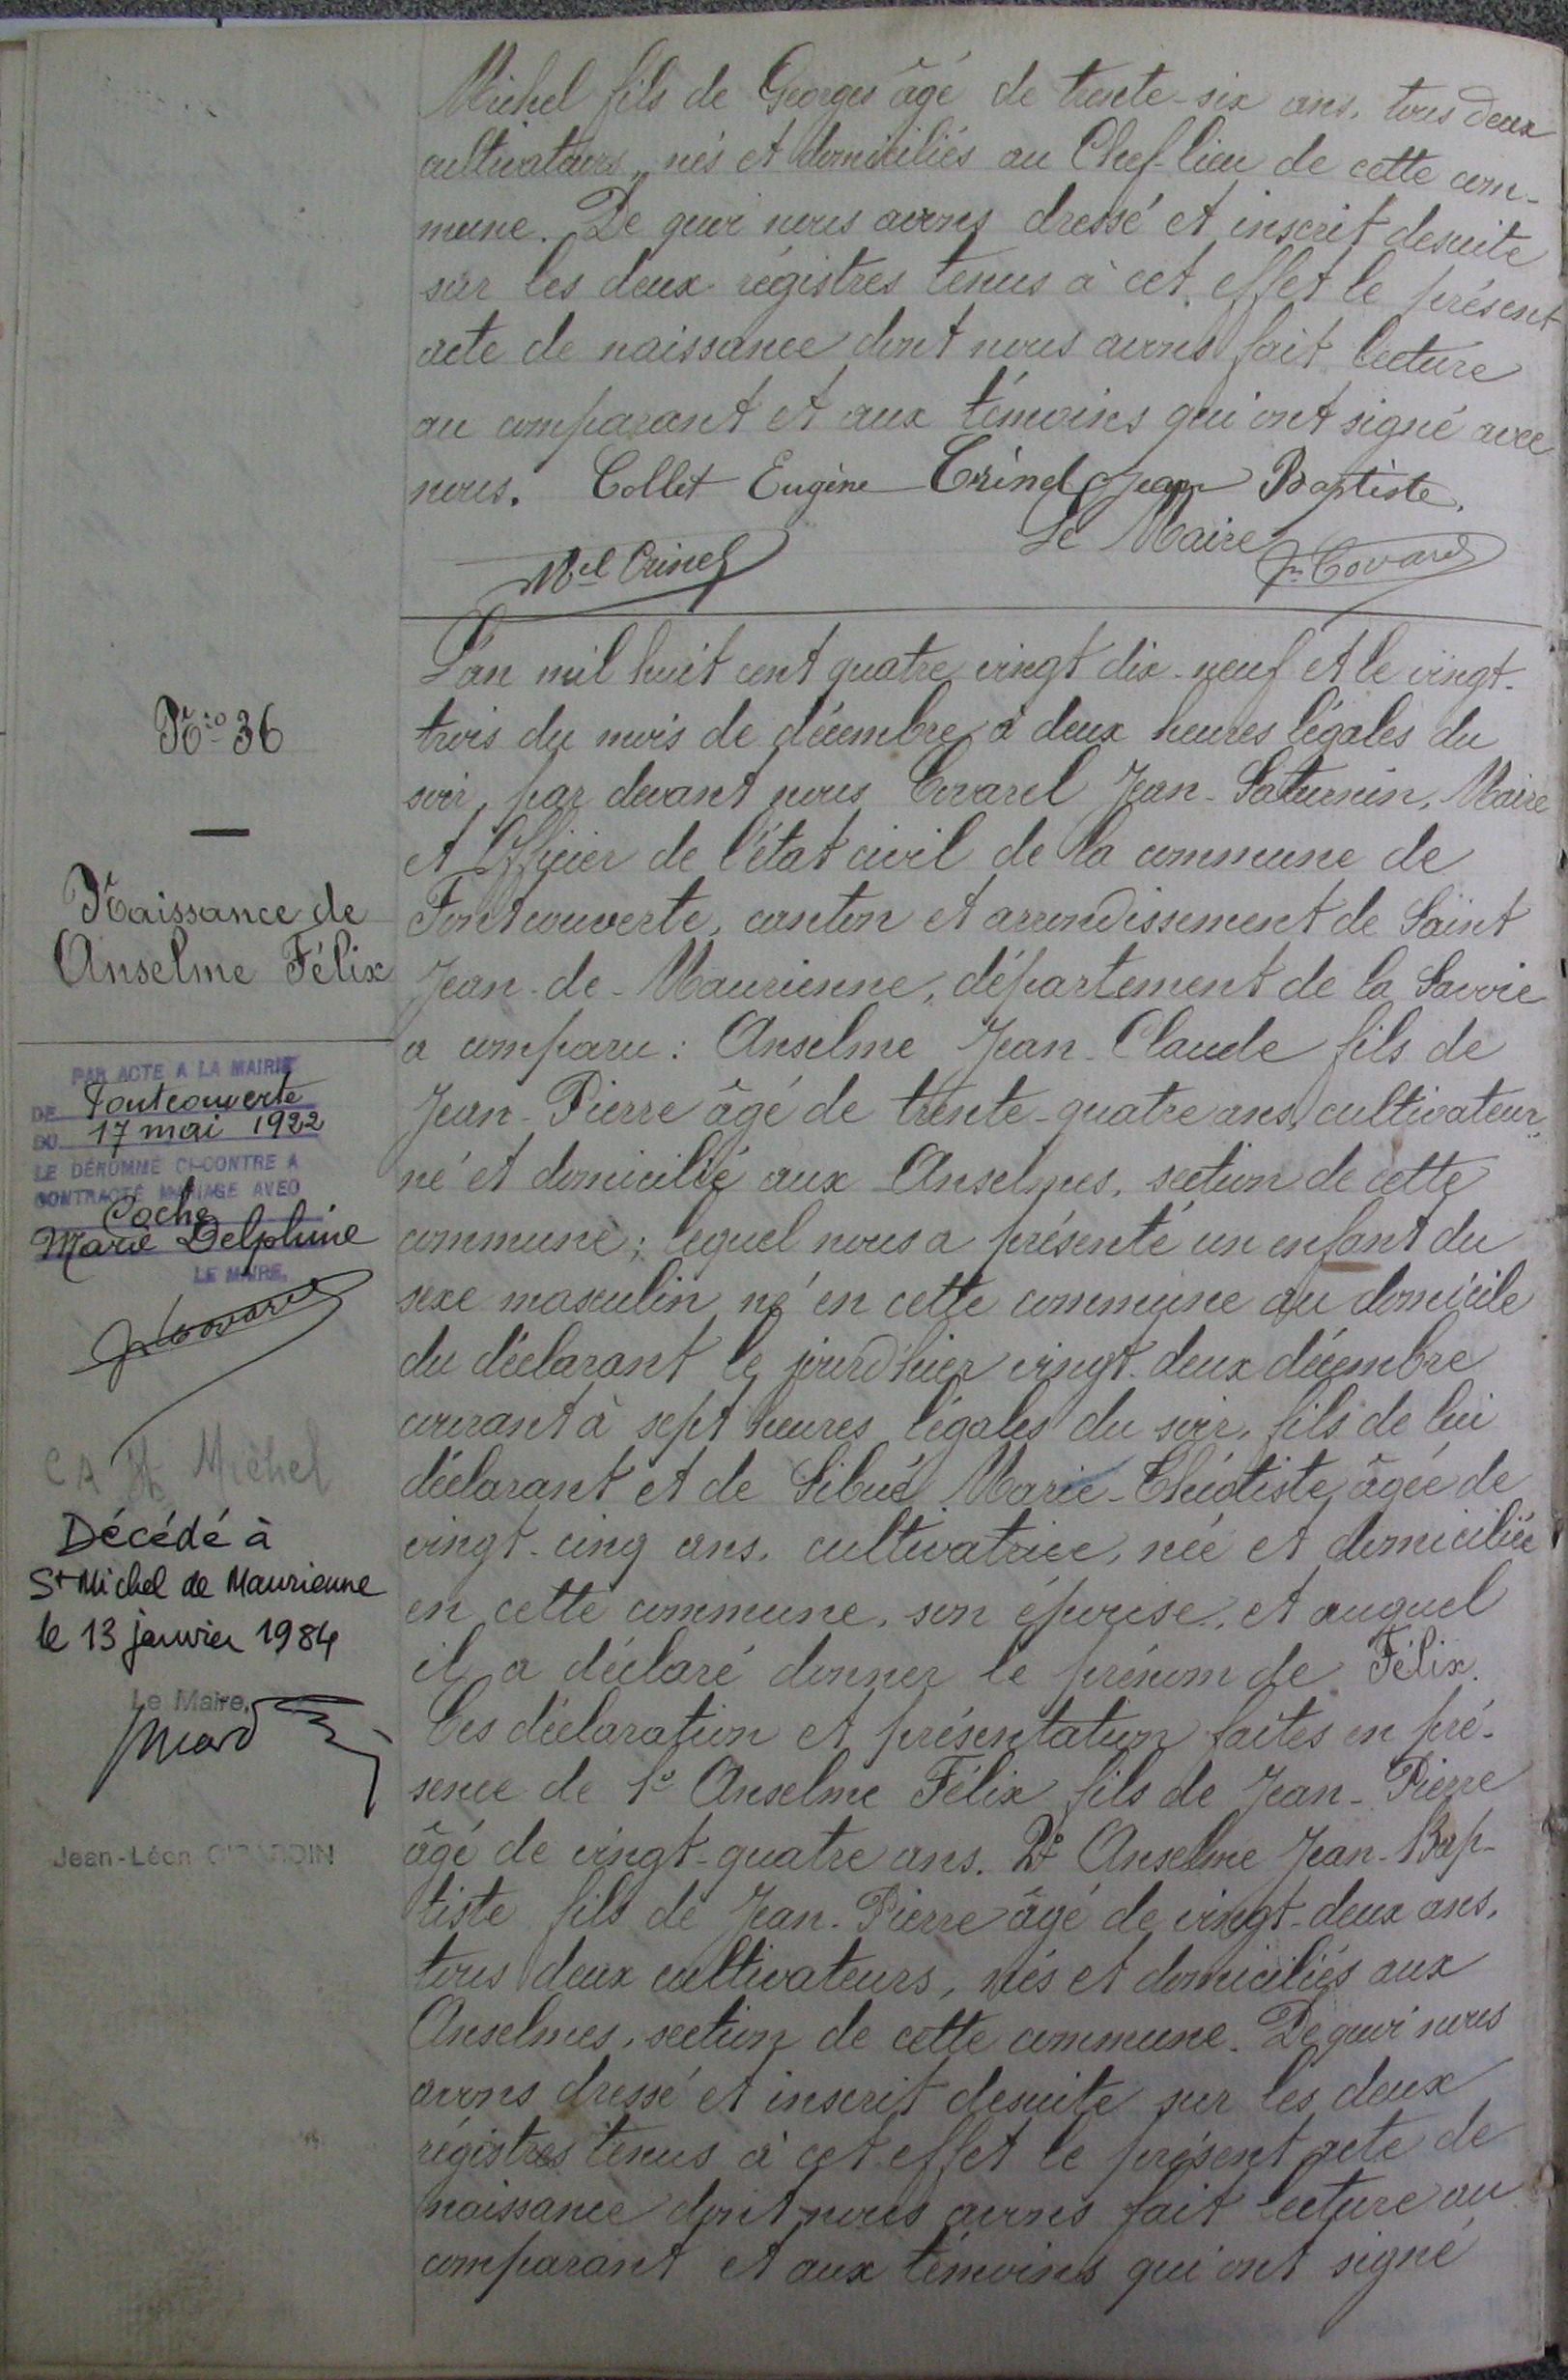 Michel fils de Georges âgé de trente-six ans, tous deux
cultivateurs, nés et domiciliés au Chef-lieu de cette com-
mune. De quoi nous avons dressé et inscrit desuite
sur les deux régistres tenus à cet effet le présent
acte de naissance dont nous avons fait lecture
au comparant et aux témoins qui ont signé avec
nous. Collet Eugène Crinel Jean Baptiste.
Le Maire
Mel Crinel Jn Covarel
No 36
Naissance de
Anselme Félix
PAR ACTE A LA MAIRIE
DE Fontcouverte
DU 17 mai 1922
LE DÉNOMMÉ CI-CONTRE A
CONTRACTÉ MARIAGE AVEC
Coche
Marie Delphine
LE MAIRE,
Jn Covarel
CA St Michel
Décédé à
St Michel de Maurienne
le 13 janvier 1984
Le Maire,
Jean-Léon GIRARDIN
L'an mil huit cent quatre vingt dix-neuf et le vingt-
trois du mois de décembre à deux heures légales du
soir, par devant nous Covarel Jean-Saturnin, Maire
et Officier de l'état civil de la commune de
Fontcouverte, canton et arrondissement de Saint
Jean-de-Maurienne, département de la Savoie
a comparu : Anselme Jean-Claude fils de
Jean-Pierre âgé de trente-quatre ans, cultivateur,
né et domicilié aux Anselmes, section de cette
commune ; lequel nous a présenté un enfant du
sexe masculin né en cette commune au domicile
du déclarant le jourd'hier vingt-deux décembre
courant à sept heures légales du soir, fils de lui
déclarant et de Sibué Marie-Théotiste âgée de
vingt-cinq ans, cultivatrice, née et domiciliée
en cette commune, son épouse, et auquel
il a déclaré donner le prénom de Félix.
Ces déclaration et présentation faites en pré-
sence de 1o Anselme Félix fils de Jean-Pierre
âgé de vingt-quatre ans. 2o Anselme Jean-Bap-
tiste fils de Jean-Pierre âgé de vingt-deux ans,
tous deux cultivateurs, nés et domiciliés aux
Anselmes, section de cette commune. De quoi nous
avons dressé et inscrit desuite sur les deux
régistres tenus à cet effet le présent acte de
naissance dont nous avons fait lecture au
comparant et aux témoins qui ont signé